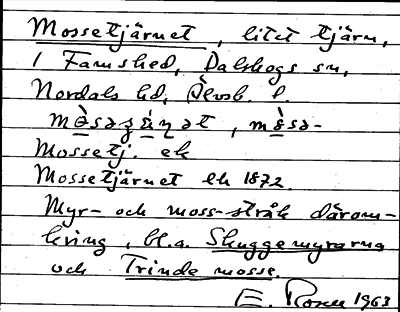 Mossetjärnet, litet tjärn,
i Famshed, Dalskogs sn,
Nordals hd, Älvsb. l.
Mossetj. ek
Mossetjärnet ek 1872.
Myr- och moss-stråk därom-
kring, bl.a. Skuggemyrarna
och Trinde mosse.
E. Rosell 1963